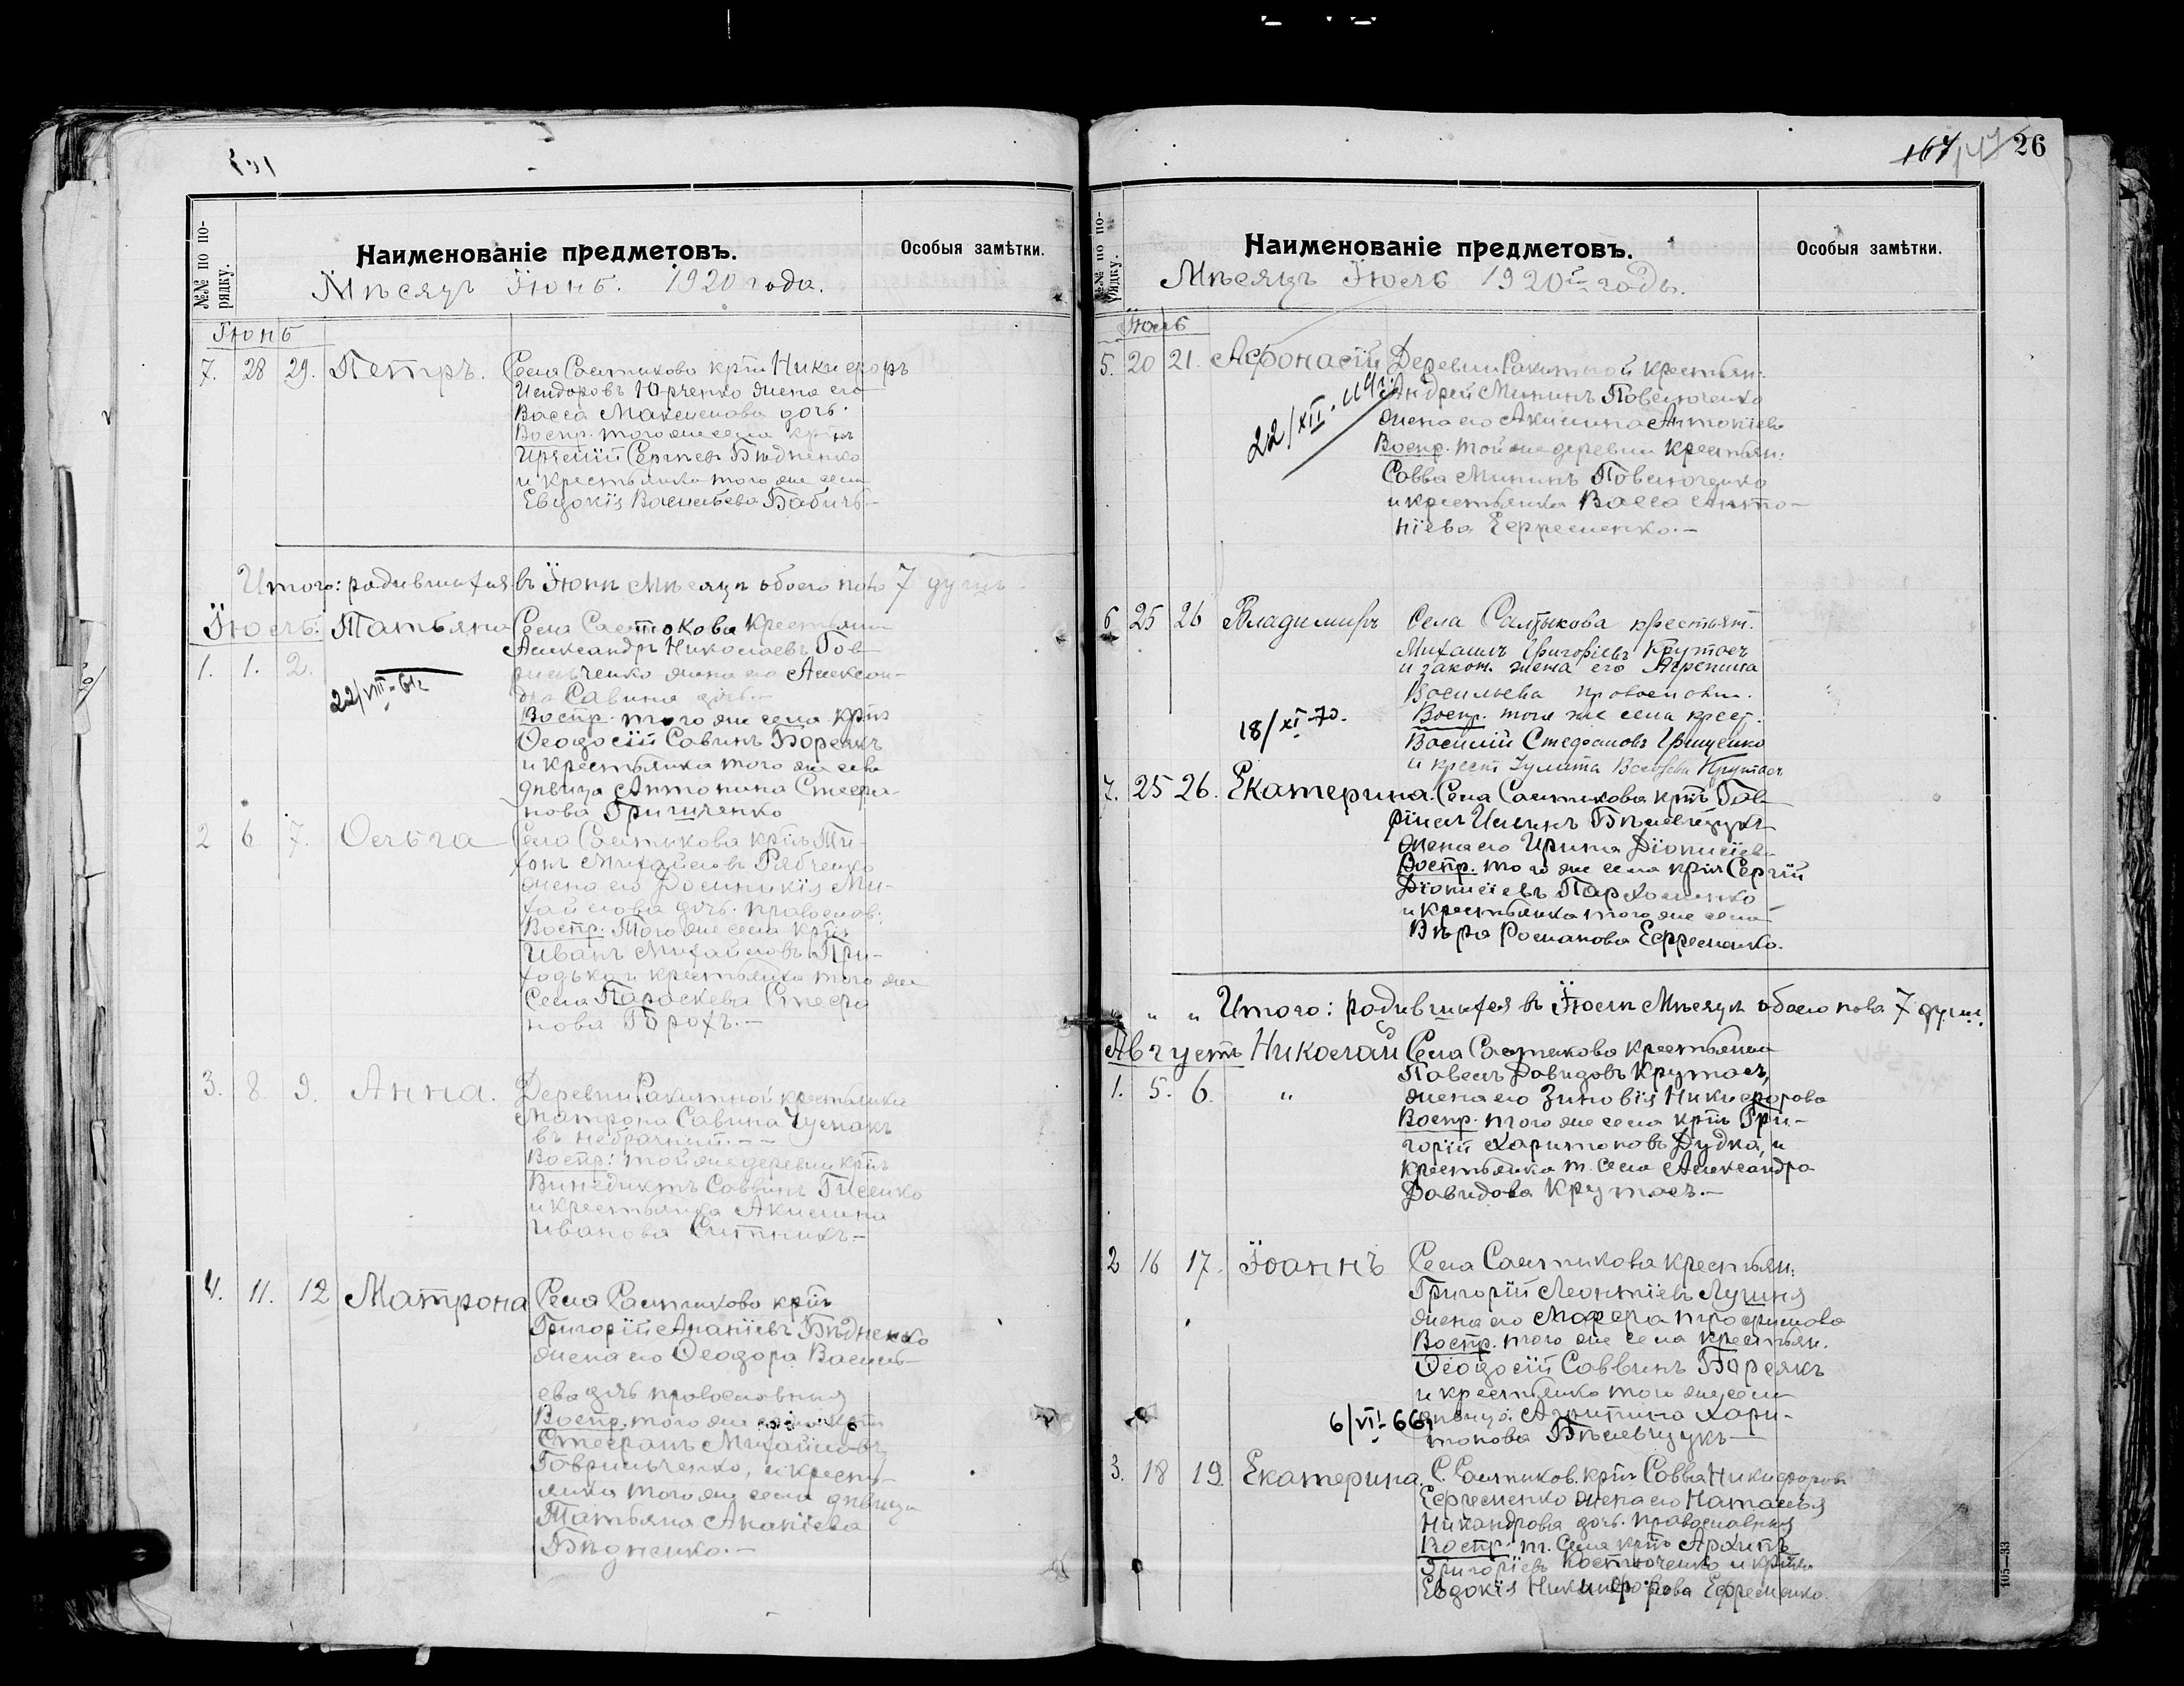 №№ по по-
рядку.
Наименованіе предметовъ.
Особыя замѣтки.
Мѣсяцъ Їюнь. 1920 года.
Їюнь
7. 28 29. Петръ. Села Салтикова крнъ Никифоръ
Исидоровъ Юрченко жена его
Васса Максимова дочь.
Воспр. того же села крнъ
Сергѣевъ Бѣдненко
и крестьянка того же села
Евдокія Васильева Бабичъ—
Итого: родившихся въ Їюнѣ Мѣсяцѣ обоего пола 7 душъ
Їюль. Татьяна Села Салтикова Крестьянин
1. 1. 2. Александръ Николаевъ Гав-
рильченко жена его Алексан-
22/VIII-61г
дра Савина дочь.—
Воспр. того же села крнъ
Ѳеодосій Савинъ Борсякъ
и крестьянка того же села
дѣвица Антонина Стефа-
нова Грищченко
2 6 7. Ольга Села Салтикова крнъ Ти-
хонъ Михайловъ Рябченко
жена его Домникія Ми-
хайлова дочь. православ:
Воспр. Того же села крнъ
Иванъ Михайловъ При-
ходько и крестьянка того же
Села Параскева Стефа
нова Горохъ.—
3. 8. 9. Анна. Деревни Ракитной крестьянка
Матрона Савина Чумакъ
въ небрачный.——
Воспр: той же деревни крнъ
Винедиктъ Саввинъ
и крестьянка Акилина
Иванова Ситникъ—
4. 11. 12 Матрона Села Салтикова крнъ
Григорій Ананіевъ Бѣдненко
жена его Ѳеодора Василь-
ева дочь православныя
Воспр. того же села крнъ
Стефанъ Михайловъ
Гаврильченко, и кресть-
янка того же села дѣвица
Татьяна Ананіева
Бѣдненко.—
167 26
№№ по по-
рядку.
Наименованіе предметовъ.
Особыя замѣтки.
Мѣсяцъ Їюль 1920го года.
Їюль
5. 20 21. Афонасій Деревни Ракитной крестьян:
Андрей Мининъ Повелюченко
22/XII-
жена его Акилина Антоніева
Воспр. той же деревни крестьян:
Савва Мининъ Повелюченко
и крестьянка Васса Анто-
ніева Ефременко.—
6 25 26 Владимиръ Села Салтыкова крестьян.
Михаилъ Григорьевъ Крутасъ
и закон. жена его Агрепина
Васильева православн.
18/XI-70.
Воспр. того же села крест.
Василій Стефановъ Грищенко
и крест Улита Крутасъ
7. 25 26. Екатерина. Села Салтикова крнъ Гав-
ріилъ Ильинъ Бѣлевщукъ
жена его Ирина Діонисіева
Воспр. того же села крнъ Сергій
Діонисіевъ Пархоменко
и крестьянка того же села
Вѣра Романова Ефременко.
„ „ Итого: родившихся въ Їюлѣ Мѣсяцѣ обоего пола 7 душъ.
Августъ Николай Села Салтикова Крестьянин
1. 5. 6. „ Павелъ Давидовъ Крутасъ,
жена его Зиновія Никифорова
Воспр. того же села крнъ Гри-
горій Харитоновъ Дудка, и
крестьянка т. села Александра
Давидова Крутасъ.—
2 16 17. Їоаннъ Села Салтикова крестьян:
Григорій Леонтіевъ Лушня
жена его Марфа Трофимова
Воспр. того же села крестьян.
Ѳеодосій Саввинъ Борсякъ
и крестьянка того же села
6/VI-66г
дѣвица Агрипина Хари-
тонова Бѣлевщукъ—
3. 18 19 Екатерина. С. Салтиков. крнъ Савва Никифоровъ
Ефременко жена его Наталья
Никандрова дочь. православныя
Воспр. т. Села крнъ Архипъ
Григоріевъ Костюченко и крнка
Евдокія Никифорова Ефременко.
105—33